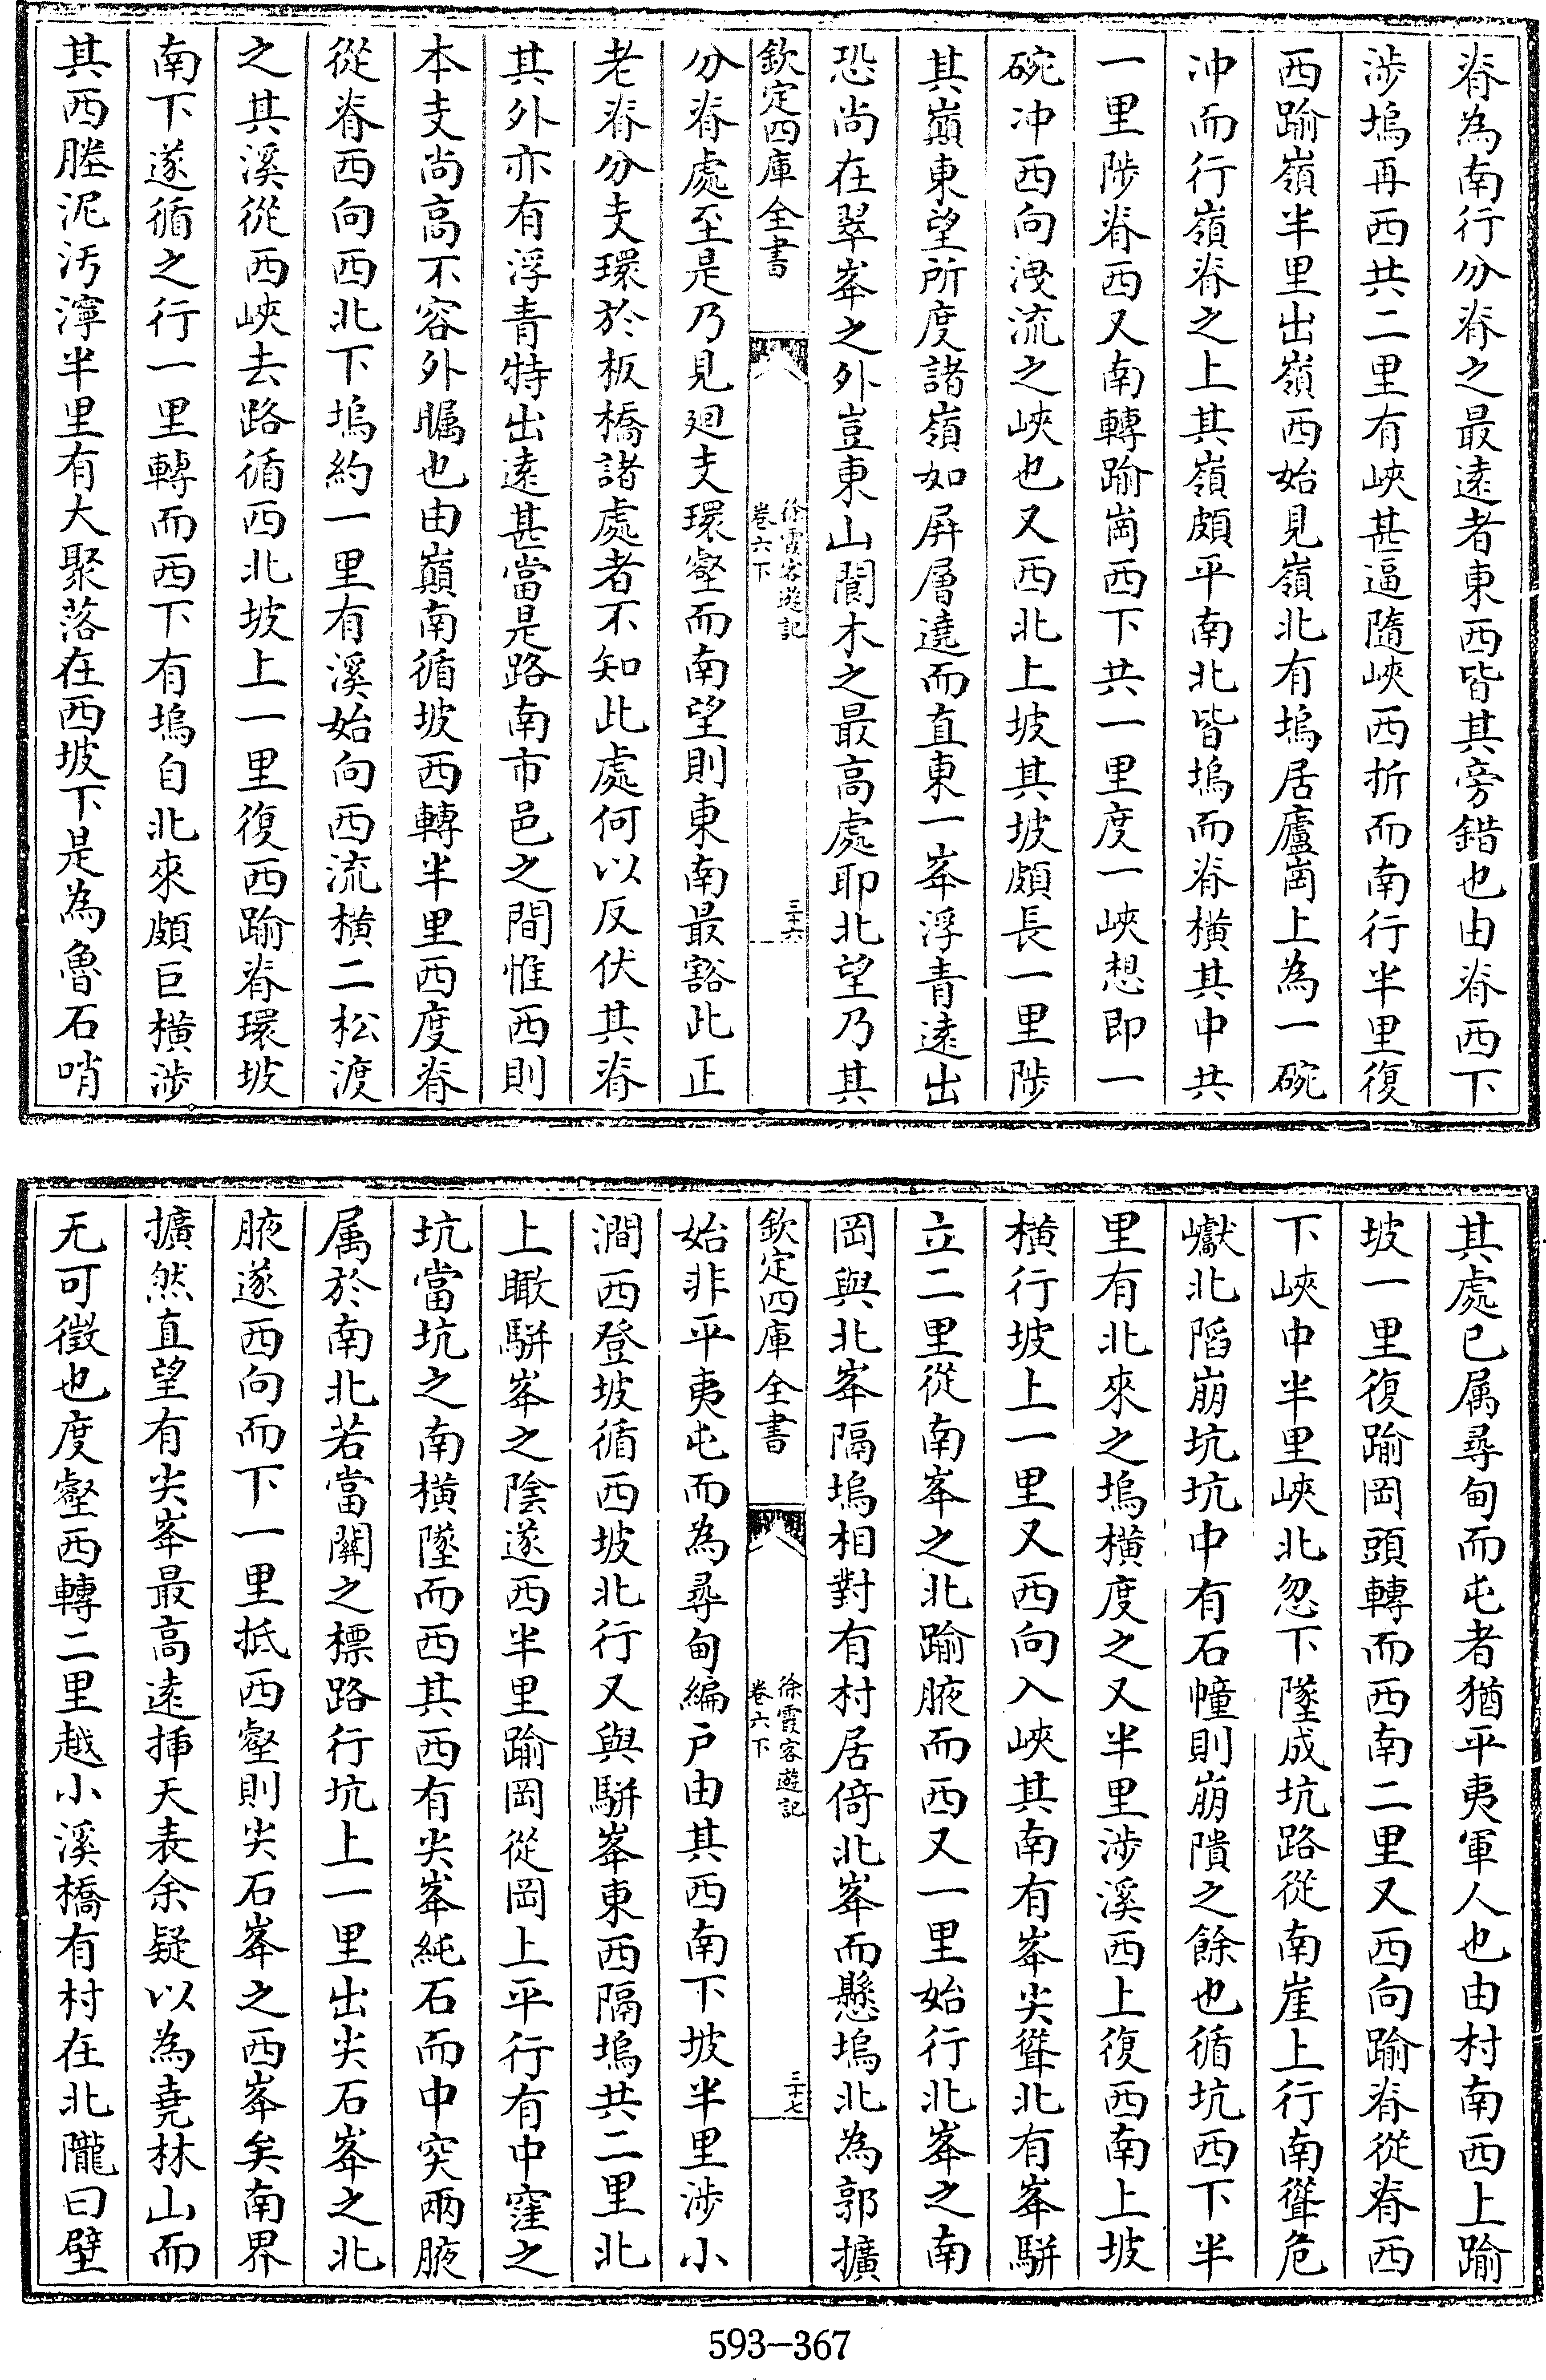 脊為南行分脊之最遠者東西皆其旁錯也由脊西下
涉塢再西共二里有峽甚逼隨峽西折而南行半里復
西踰嶺半里出嶺西始見嶺北有塢居廬崗上為一碗
冲而行嶺脊之上其嶺頗平南北皆塢而脊横其中共
一里陟脊西又南轉踰崗西下共一里度一峽想即一
碗冲西向洩流之峽也又西北上坡其坡頗長一里陟
其巔東望所度諸嶺如屏層遶而直東一峯浮青遠出
恐尚在翠峯之外豈東山閬木之最高處耶北望乃其
欽定四庫全書
徐霞客遊記
卷六下
三十六
分脊處至是乃見廻支環壑而南望則東南最豁此正
老脊分支環於板橋諸處者不知此處何以反伏其脊
其外亦有浮青特出遠甚當是路南市邑之間惟西則
本支尚高不容外矚也由巔南循坡西轉半里西度脊
從脊西向西北下塢約一里有溪始向西流横二松渡
之其溪從西峽去路循西北坡上一里復西踰脊環坡
南下遂循之行一里轉而西下有塢自北來頗巨横涉
其西塍泥汚濘半里有大聚落在西坡下是為魯石哨
其處已属尋甸而屯者猶平夷軍人也由村南西上踰
坡一里復踰岡頭轉而西南二里又西向踰脊從脊西
下峽中半里峽北忽下墜成坑路從南崖上行南聳危
巘北䧟崩坑坑中有石幢則崩隤之餘也循坑西下半
里有北來之塢横度之又半里涉溪西上復西南上坡
横行坡上一里又西向入峽其南有峯尖聳北有峯駢
立二里從南峯之北踰腋而西又一里始行北峯之南
岡與北峯隔塢相對有村居倚北峯而懸塢北為郭擴
欽定四庫全書
徐霞客遊記
卷六下
三十七
始非平夷屯而為尋甸編户由其西南下坡半里涉小
澗西登坡循西坡北行又與駢峯東西隔塢共二里北
上瞰駢峯之陰遂西半里踰岡從岡上平行有中窪之
坑當坑之南横墜而西其西有尖峯純石而中突兩腋
属於南北若當關之標路行坑上一里出尖石峯之北
腋遂西向而下一里抵西壑則尖石峯之西峯矣南界
擴然直望有尖峯最高遠挿天表余疑以為堯林山而
无可徵也度壑西轉二里越小溪橋有村在北隴曰壁
593-367